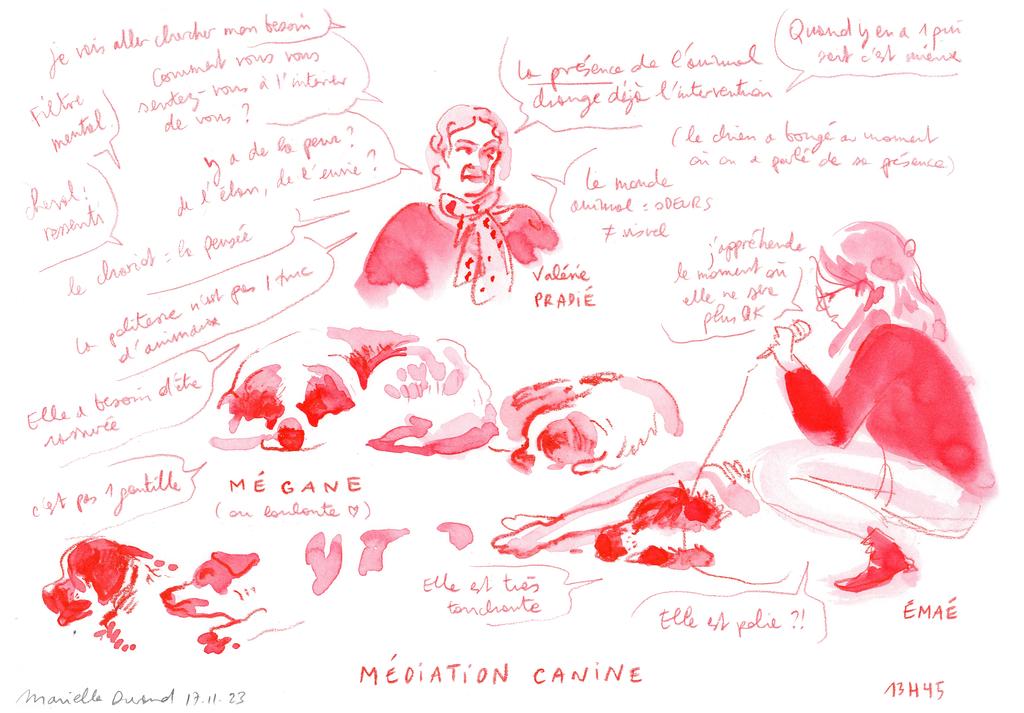 je vais aller chercher mon besoin
Comment vous vous
sentez-vous à l'intérieur
de vous ?
Filtre
mental
y a de la peur ?
de l'élan, de l'envie ?
cheval :
ressenti
le chariot = la pensée
la politesse n'est pas 1 truc
d'animaux
Elle a besoin d'être
rassurée
c'est pas 1 gentille
la présence de l'animal
change déjà l'intervention
Quand y en a 1 qui
sort c'est mieux
(le chien a bougé au moment
où on a parlé de sa présence)
le monde
animal = ODEURS
≠ visuel
Valérie
PRADIÉ
j'appréhende
le moment où
elle ne sera
plus OK
MÉGANE
(ou loulonte ♡)
Elle est très
touchante
Elle est polie ?!
ÉMAÉ
MÉDIATION CANINE
13H45
Marielle Durand 17.11.23